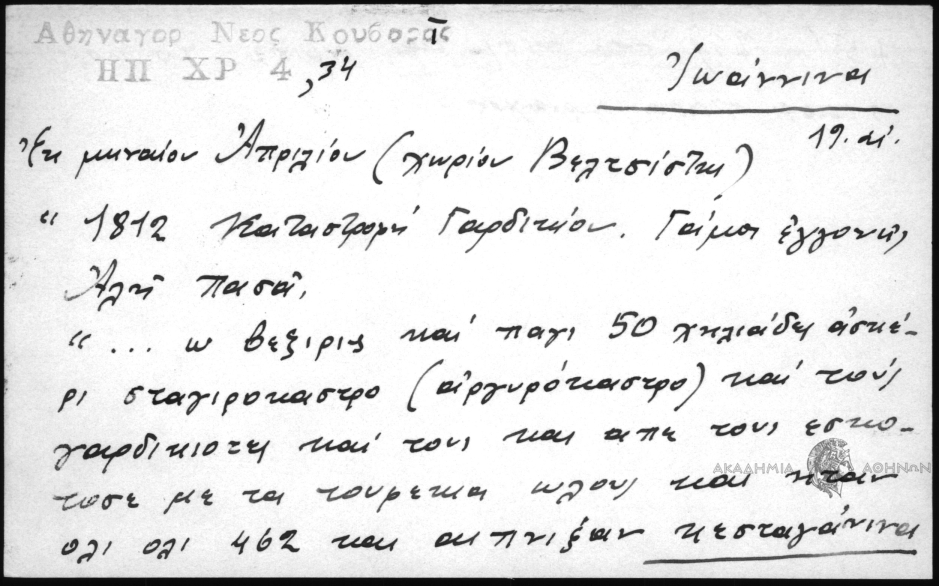 Αθηναγορ Νεος Κουβαρᾶς
ΗΠ ΧΡ 4, 34
Ἰωάννινα
19. αἰ.
Ἐκ μηναίου Ἀπριλίου (χωρίον Βελτσίστης)
" 1812 Καταστροφή Γαρδικίου. Γάμοι ἐγγονῆς
Ἀλῆ Πασᾶ.
" ... ω βεζιρις καί παγι 50 χηλιάδες ἀσκέ-
ρι σταγιροκαστρο (ἀργυρόκαστρο) καί τούς
γαρδικιοτες καί τους και απε τους εσκο-
τοσε με τα τουφεκια ωλους και ηταν
ολι ολι 462 και επνιξαν κεσταγάνινα
ΑΚΑΔΗΜΙΑ ΑΘΗΝΩΝ